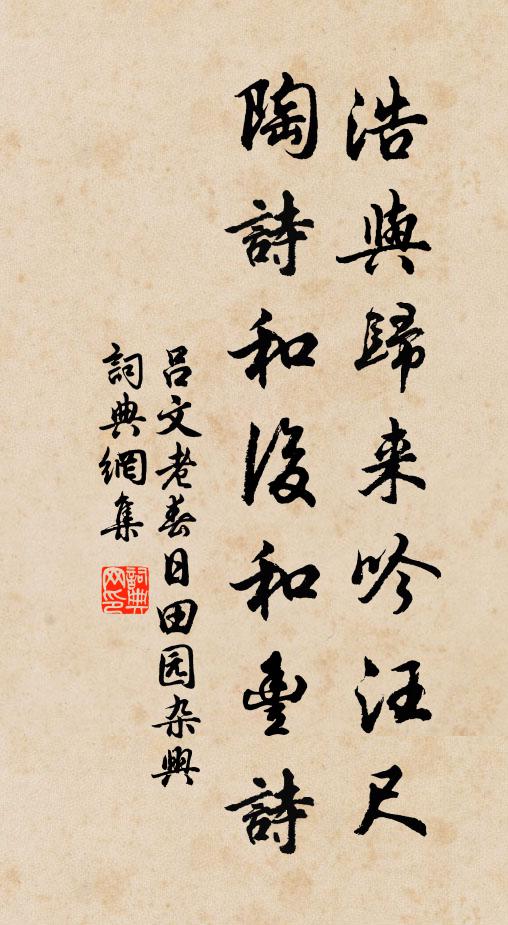 浩與歸来吟汪尺
陶詩和後和豐詩
吕文老春日田园杂興
詞典網集
詞典网印